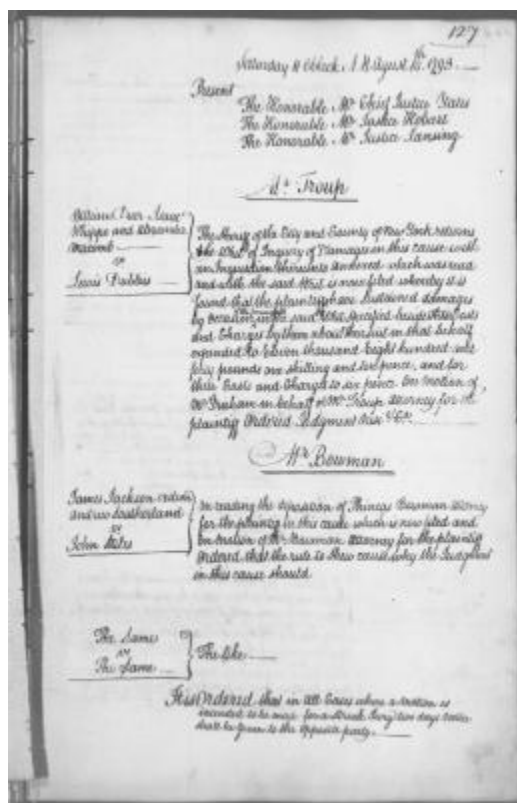 127
Saturday 10 oClock A M August 1793.
Present
The Honorable Mr Chief Justice Yates
The Honorable Mr Justice Hobart
The Honorable Mr Justice Lansing
Mr Troup
William Duer Isaac
Whippo and Alexander
Macomb
vs
Lewis
The Sheriff of the City and County of New York returns
the Writ of Inquiry of Damages in this cause with
an Inquisition thereunto annexed which was read
and with the said Writ is now filed whereby it is
found that the plaintiffs have sustained damages
by occasion in the said Writ specified besides their Costs
and Charges by them about their suit in that behalf
expended to Eleven thousand Eight hundred and
forty pounds one shilling and six pence, and for
their Costs and Charges to six pence On motion of
Mr Graham in behalf of Mr Troup attorney for the
plaintiff Ordered Judgment Nisi &c.
Mr Bowman
James Jackson ex dem
Andrew Southerland
vs
John
On reading the deposition of Phineas Bowman attorney
for the plaintiff in this cause which is now filed and
on motion of Mr Bowman attorney for the plaintiff
Ordered that the rule to shew cause why the Judgment
in this cause should
The Same
vs
The Same
The like
It is Ordered that in all Cases where a motion is
intended to be made for a Struck Jury two days notice
shall be given to the opposite party.